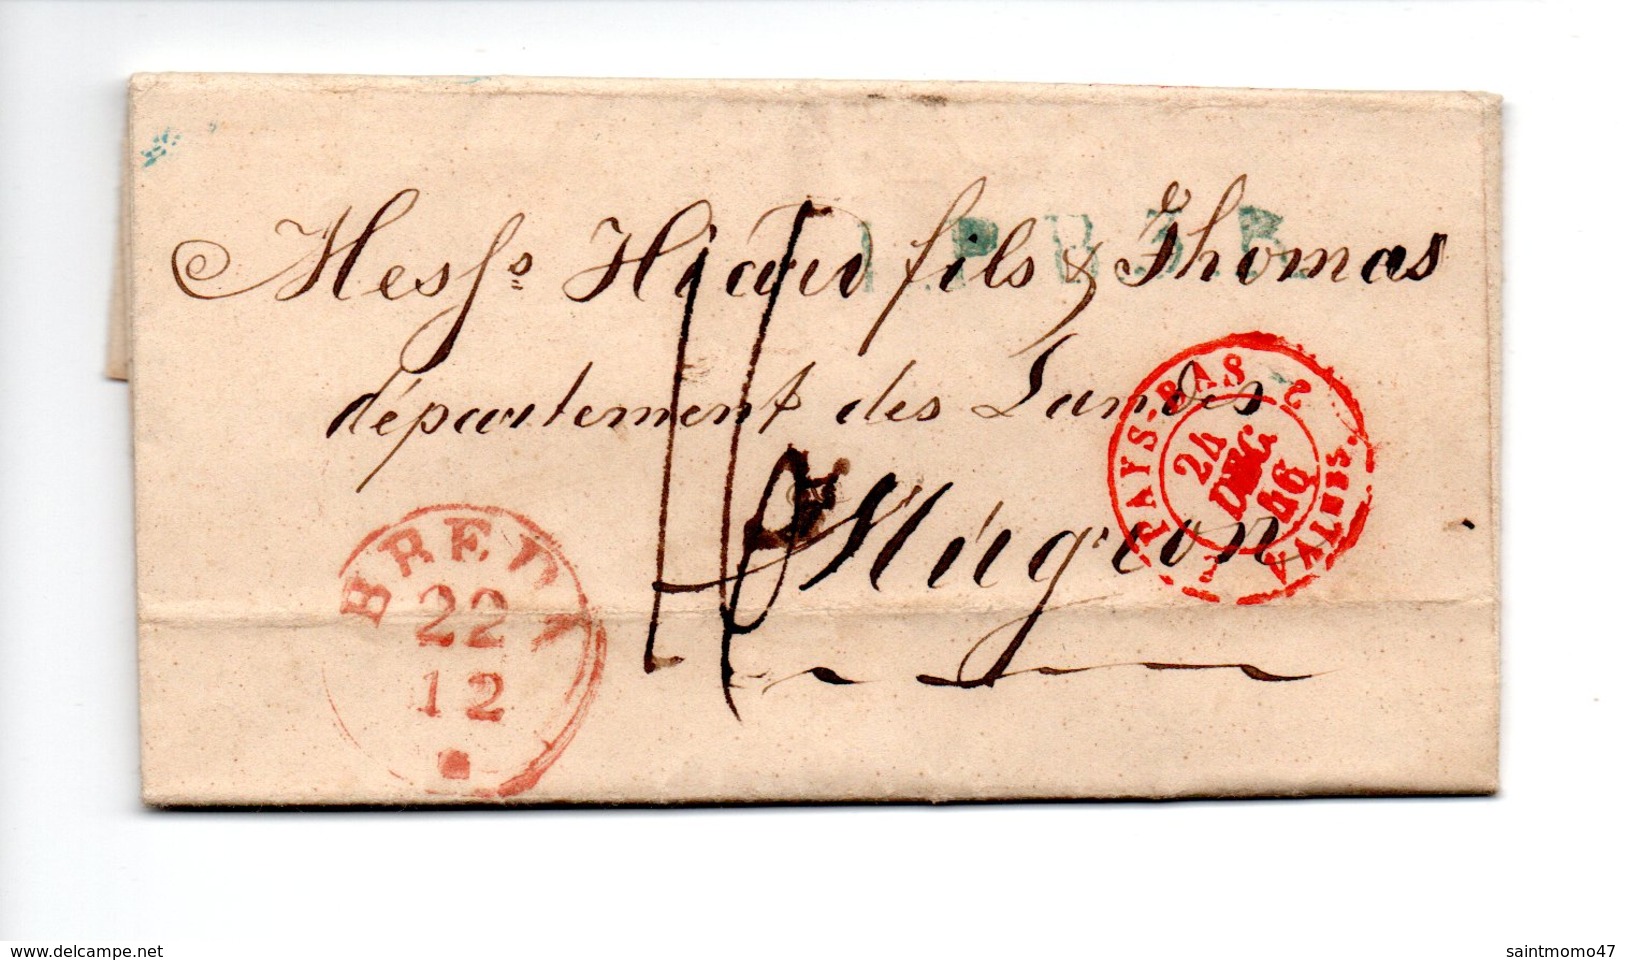 Messrs. Hiard fils & Thomas
département des Landes
Mugron
BREDA
22
12
PAYS-BAS 2
24
DEC.
46
2 VALnes.
delcampe.net
saintmomo47